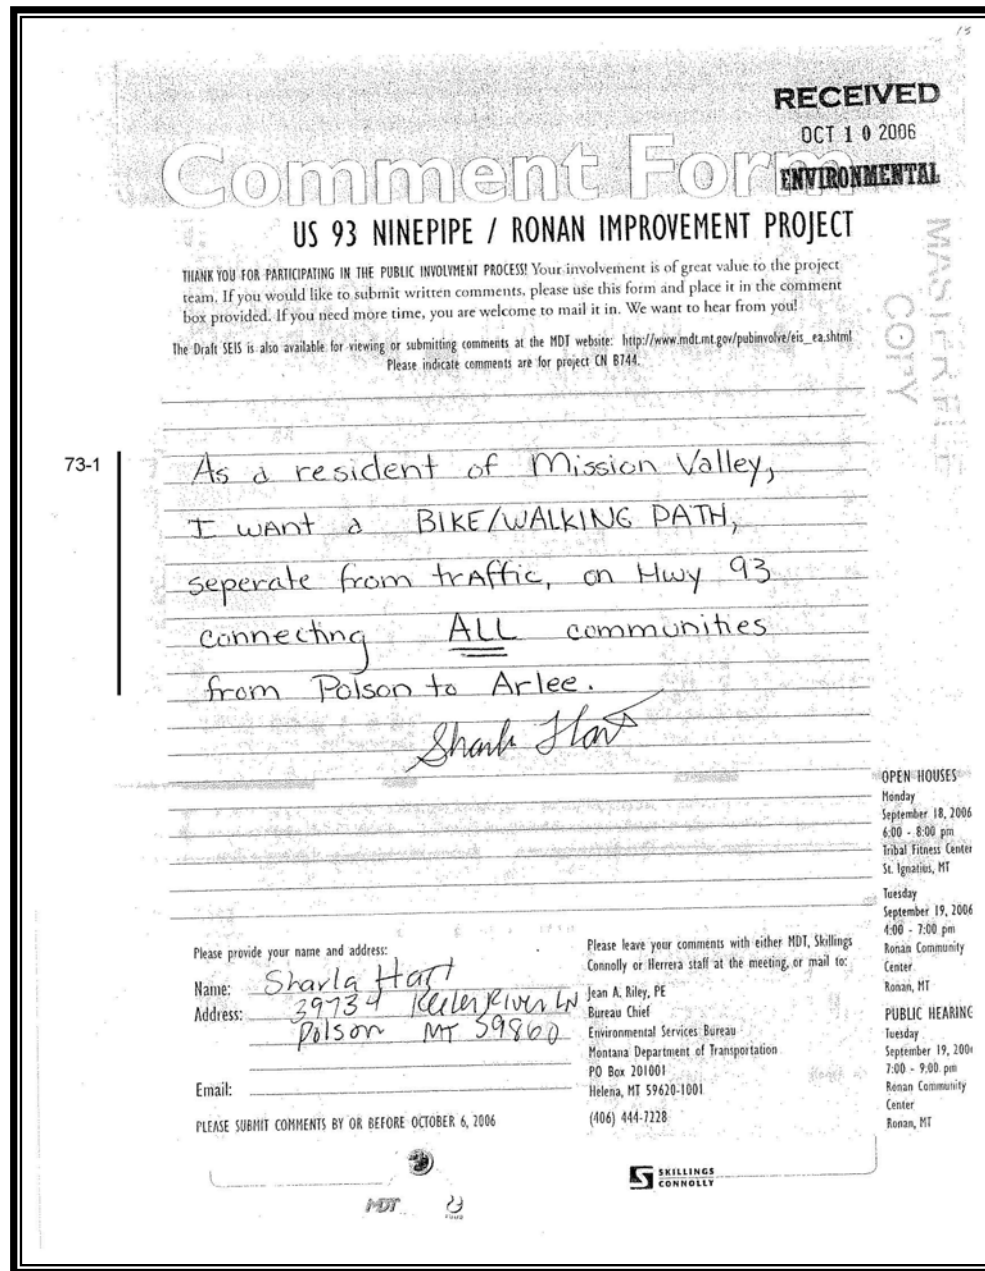 15
RECEIVED
OCT 10 2006
ENVIRONMENTAL
Comment Form
US 93 NINEPIPE / RONAN IMPROVEMENT PROJECT
MASTER FILE
COPY
THANK YOU FOR PARTICIPATING IN THE PUBLIC INVOLVMENT PROCESS! Your involvement is of great value to the project
team. If you would like to submit written comments, please use this form and place it in the comment
box provided. If you need more time, you are welcome to mail it in. We want to hear from you!
The Draft SEIS is also available for viewing or submitting comments at the MDT website: http://www.mdt.mt.gov/pubinvolve/eis_ea.shtml
Please indicate comments are for project CN B744.
73-1
As a resident of Mission Valley,
I want a BIKE/WALKING PATH,
seperate from traffic, on Hwy 93
connecting ALL communities
from Polson to Arlee.
Sharla Hart
OPEN HOUSES
Monday
September 18, 2006
6:00 - 8:00 pm
Tribal Fitness Center
St. Ignatius, MT
Tuesday
September 19, 2006
4:00 - 7:00 pm
Ronan Community
Center
Ronan, MT
PUBLIC HEARING
Tuesday
September 19, 200
7:00 - 9:00 pm
Ronan Community
Center
Ronan, MT
Please provide your name and address:
Name: Sharla Hart
Address: 39734 River LN
Polson MT 59860
Email:
PLEASE SUBMIT COMMENTS BY OR BEFORE OCTOBER 6, 2006
Please leave your comments with either MDT, Skillings
Connolly or Herrera staff at the meeting, or mail to:
Jean A. Riley, PE
Bureau Chief
Environmental Services Bureau
Montana Department of Transportation
PO Box 201001
Helena, MT 59620-1001
(406) 444-7228
MDT
SKILLINGS
CONNOLLY